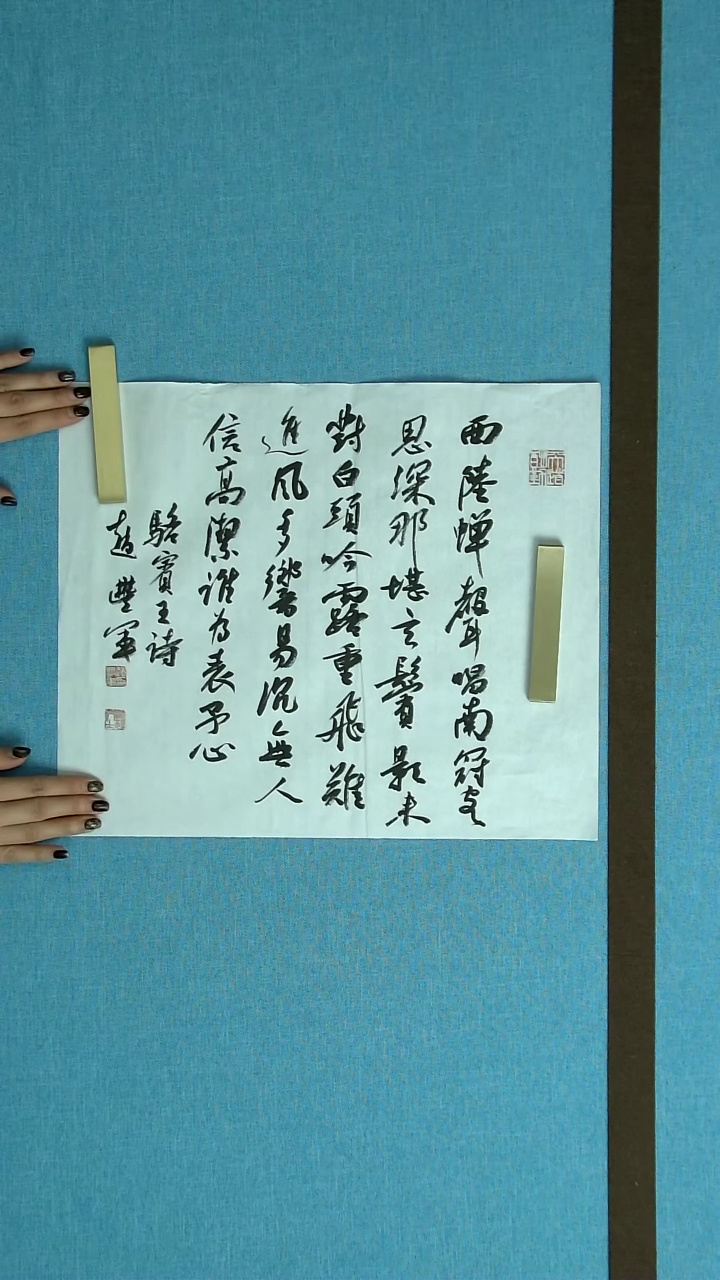 西陸蟬聲唱南冠客
思深那堪玄鬢影来
對白頭吟露重飛難
進風多響易沉無人
信高潔誰為表予心
駱賓王詩
趙豐軍